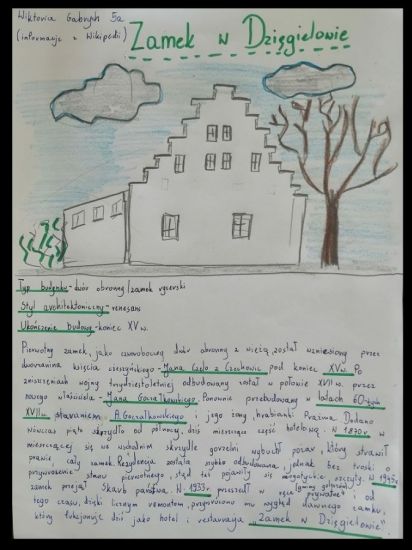 Wiktoria Gabrysh 5a
(informacje z Wikipedii)
Zamek w Dzięgielowie
Typ budynku - dwór obronny/zamek rycerski
Styl architektoniczny - renesans
Ukończenie budowy - koniec XV w.
Pierwotny zamek, jako czworoboczny dwór obronny z wieżą, został wzniesiony przez
dworzanina księcia cieszyńskiego - Jana Czelo z Czechowic pod koniec XV w. Po
zniszczeniach wojny trzydziestoletniej odbudowany został w połowie XVII w. przez
nowego właściciela - Jana Goczałkowskiego. Ponownie przebudowany w latach 60-tych
XVII w. staraniem A. Goczałkowskiego i jego żony, hrabianki Prażma. Dodano
wówczas piąte skrzydło od północy, dziś mieszczące część hotelową. W 1870 r. w
mieszczącej się we wschodnim skrzydle gorzelni wybuchł pożar, który strawił
prawie cały zamek. Rezydencja została szybko odbudowana, jednak bez troski o
przywrócenie stanu pierwotnego, stąd też pojawiły się szczyty. W 1945 r.
zamek przejął Skarb państwa. W r. przeszedł w ręce prywatne i od
tego czasu, dzięki licznym remontom, przywrócono mu wygląd dawnego zamku,
który funkcjonuje dziś jako hotel i restauracja "Zamek w Dzięgielowie"